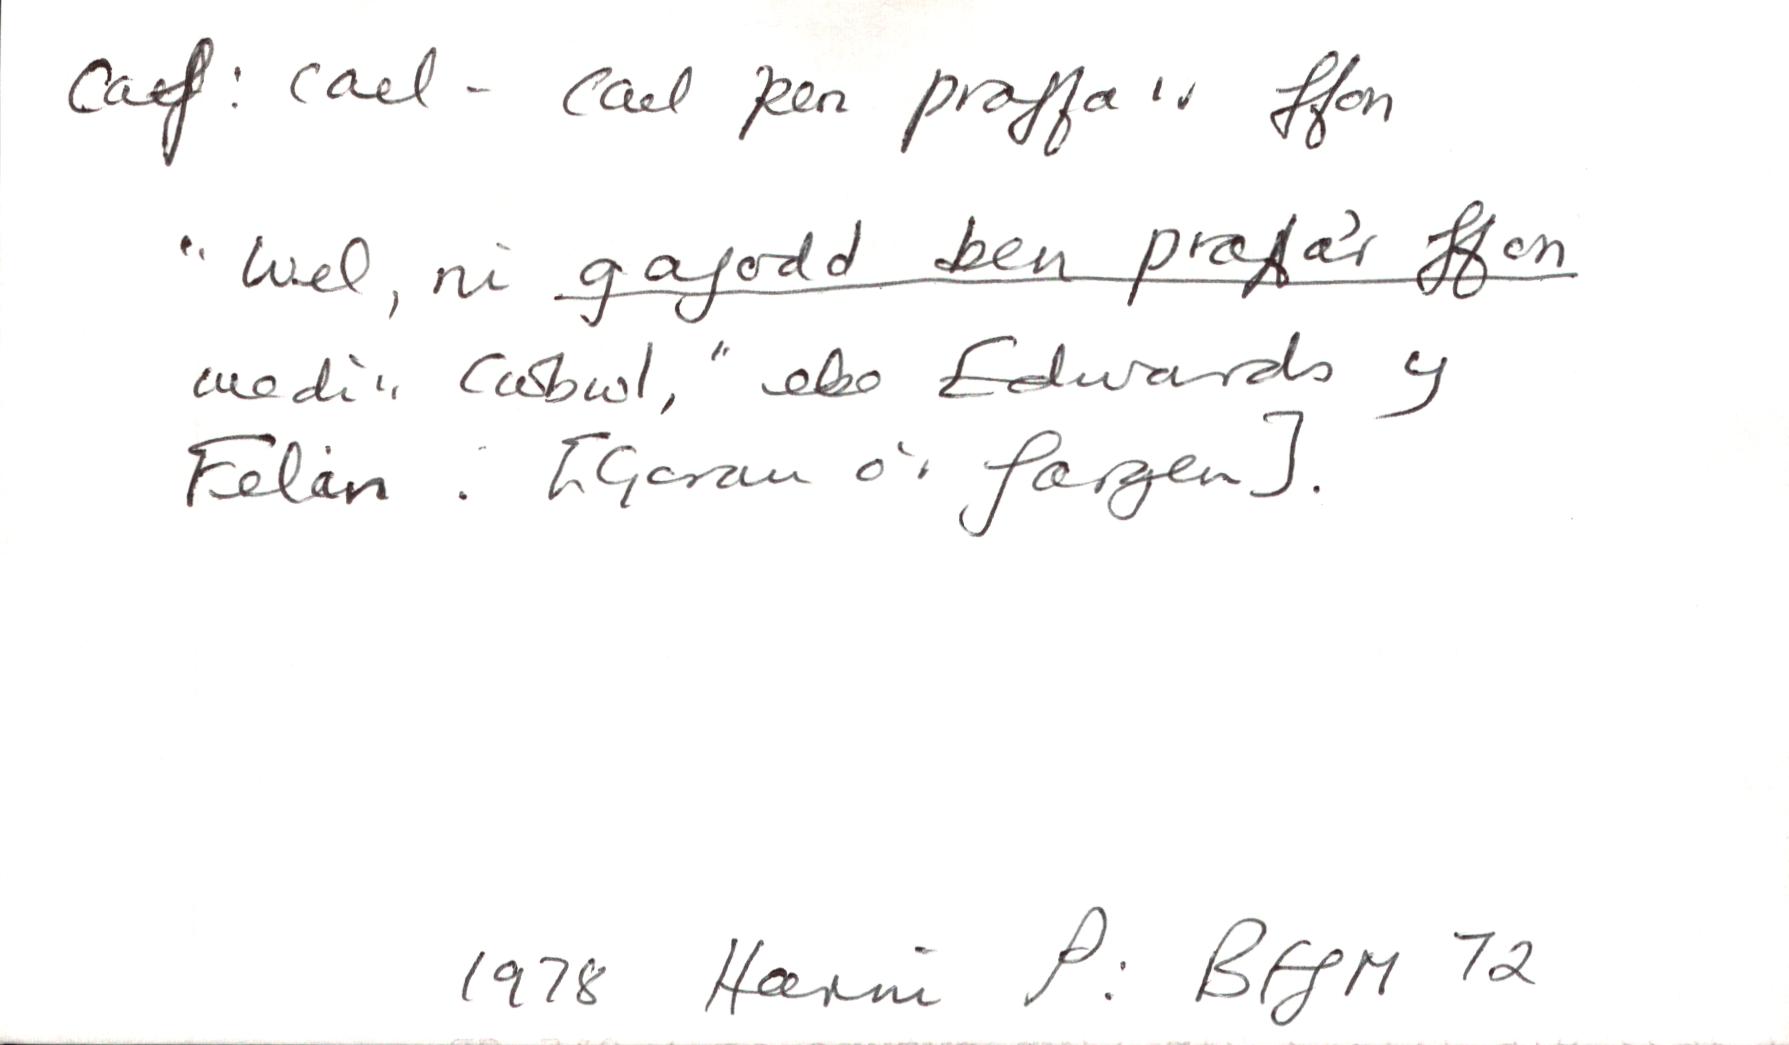 Caef: cael - cael pen praffa'r ffon
"Wel, ni gafodd ben praffa'r ffon
wedi'r cwbwl," ebe Edwards y
Felin : [Gorau o'r fargen].
1978 Harri P: BFGM 72